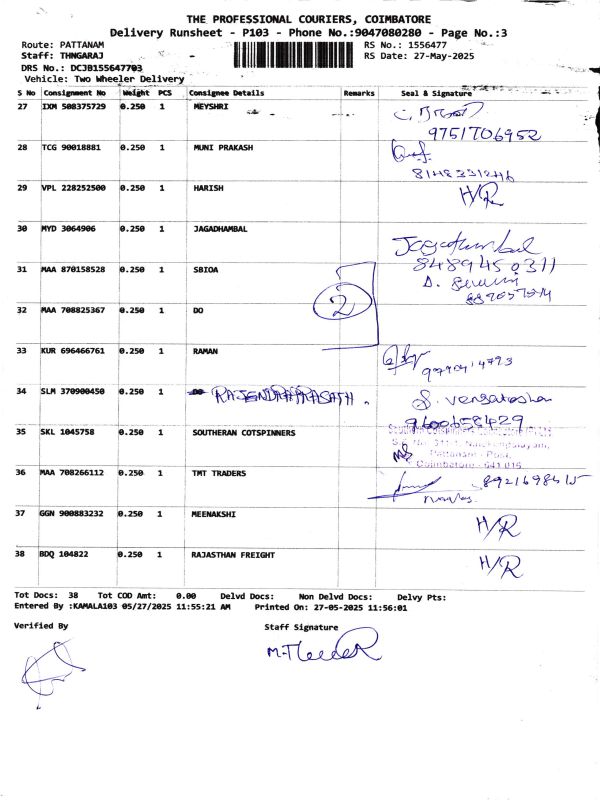 THE PROFESSIONAL COURIERS, COIMBATORE
Delivery Runsheet - P103 - Phone No.:9047080280 - Page No.:3
Route: PATTANAM RS No.: 1556477
Staff: THNGARAJ RS Date: 27-May-2025
DRS No.: DCJB155647703
Vehicle: Two Wheeler Delivery
S No Consignment No Weight PCS Consignee Details Remarks Seal & Signature
27 IXM 508375729 0.250 1 MEYSHRI
9751706952
28 TCG 90018881 0.250 1 MUNI PRAKASH
29 VPL 228252500 0.250 1 HARISH H/R
30 MYD 3064906 0.250 1 JAGADHAMBAL Jagathambal
8489450311
31 MAA 870158528 0.250 1 SBIOA
32 MAA 708825367 0.250 1 DO 2
33 KUR 696466761 0.250 1 RAMAN
34 SLM 370900450 0.250 1 RAJENDRAPRASATH. S. Vengatesha
9600658429
35 SKL 1045758 0.250 1 SOUTHERAN COTSPINNERS
Pattanam - Post,
Coimbatore - 641 016
36 MAA 708266112 0.250 1 TMT TRADERS
37 GGN 900883232 0.250 1 MEENAKSHI H/R
38 BDQ 104822 0.250 1 RAJASTHAN FREIGHT H/R
Tot Docs: 38 Tot COD Amt: 0.00 Delvd Docs: Non Delvd Docs: Delvy Pts:
Entered By :KAMALA103 05/27/2025 11:55:21 AM Printed On: 27-05-2025 11:56:01
Verified By Staff Signature